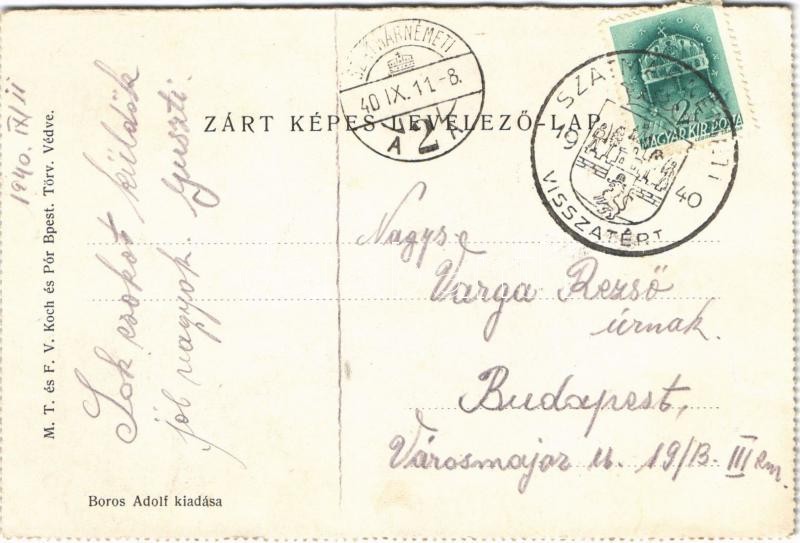 ZÁRT KÉPES LEVELEZŐ-LAP
SZATMÁRNÉMETI
40 IX. 11.-8.
2
SZATMÁRNÉMETI
1940
VISSZATÉRT
2
MAGYAR KIR. POSTA
1940. IX/11
M. T. és F. V. Koch és Pór Bpest. Törv. Védve.
Sok csokot küldök
jól vagyok. Guszti.
Nagys
Varga Rezső
úrnak.
Budapest,
Városmajor u. 19/B. III em.
Boros Adolf kiadása